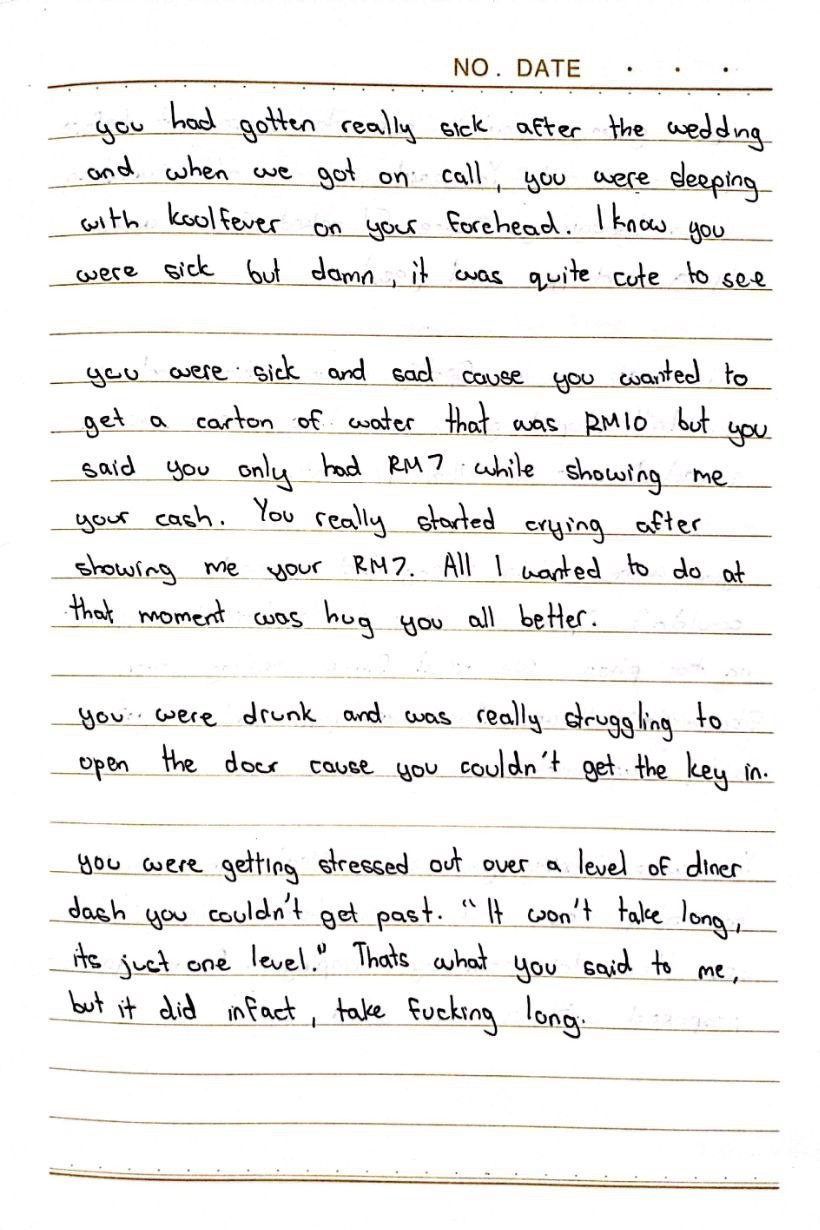 NO. DATE . . .
you had gotten really sick after the weddng
and when we got on call, you were sleeping
with koolfever on your forehead. I know you
were sick but damn, it was quite cute to see
you were sick and sad cause you wanted to
get a carton of water that was RM10 but you
said you only had RM7 while showing me
your cash. You really started crying after
showing me your RM7. All I wanted to do at
that moment was hug you all better.
you were drunk and was really struggling to
open the door cause you couldn't get the key in.
you were getting stressed out over a level of diner
dash you couldn't get past. "It won't take long,
its just one level." Thats what you said to me,
but it did infact, take fucking long.